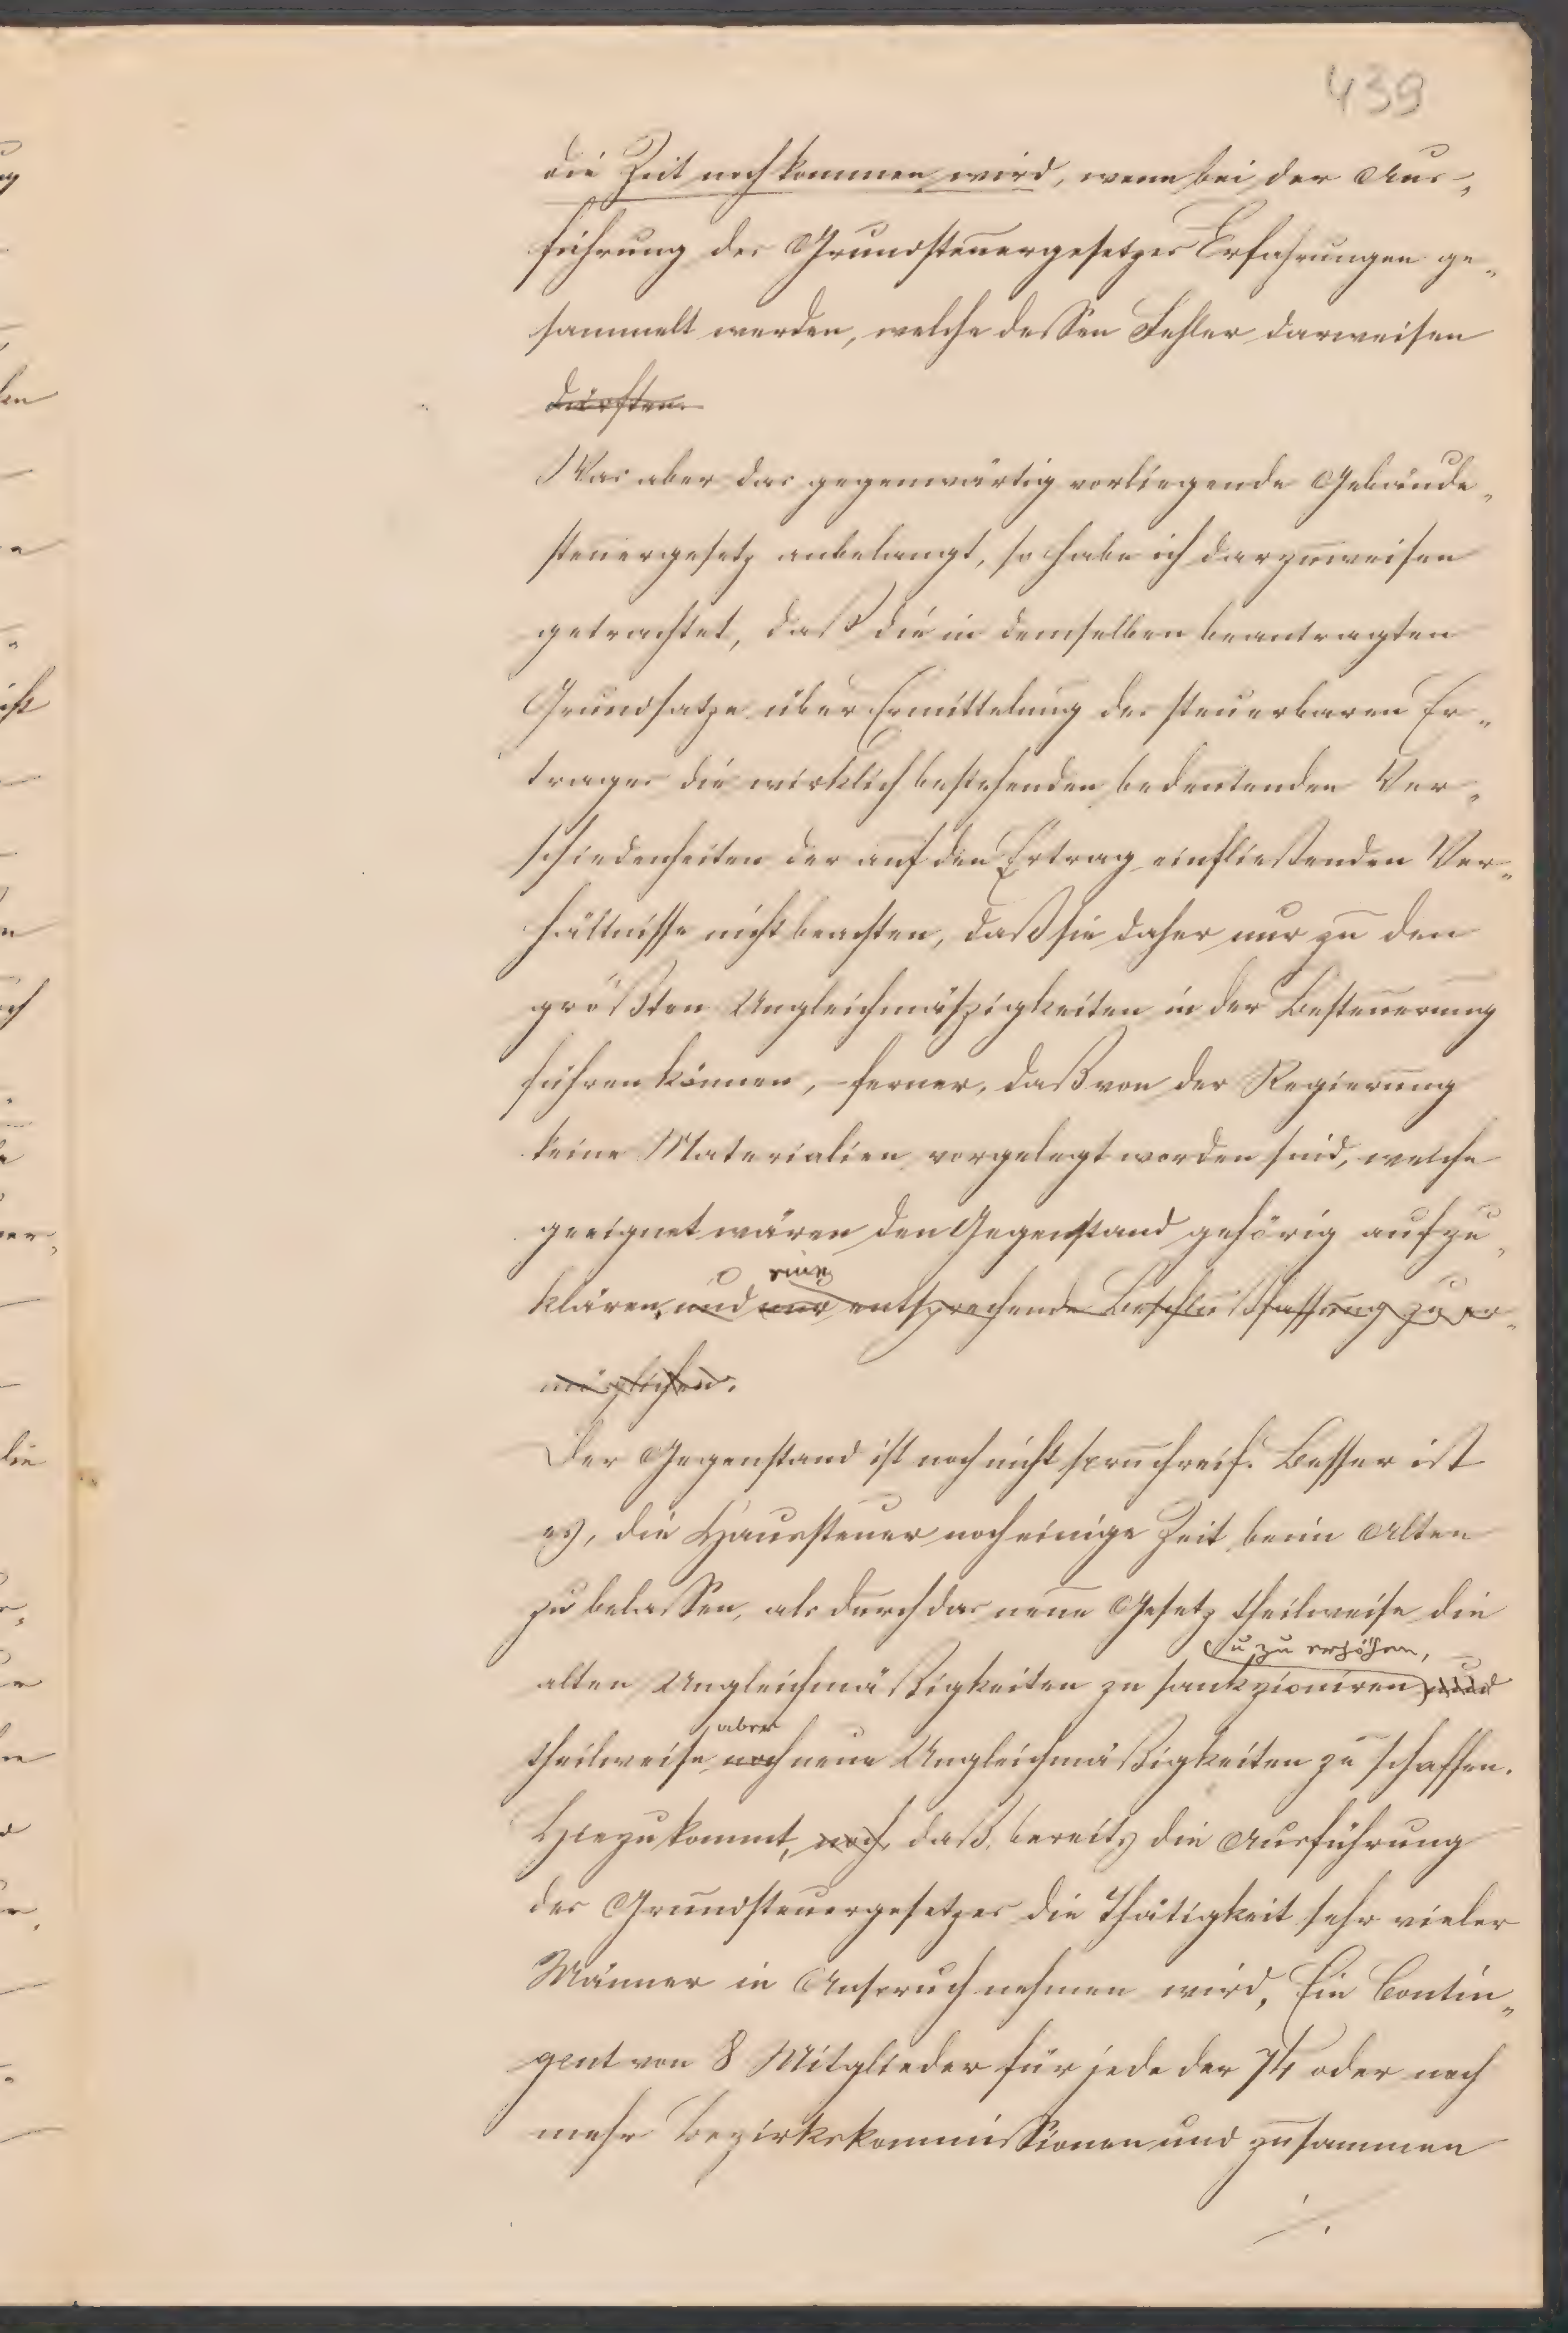 439
die Zeit noch kommen wird, wenn bei der Aus-
führung des Grundsteuergesetzes Erfahrungen ge-
sammelt werden, welche dessen Fehler darweisen
dürften.
Was aber das gegenwärtig vorliegende Gebäude-
steuergesetz anbelangt, so habe ich darzuweisen
getrachtet, daß die in demselben beantragten
Grundsatze über Ermittelung des steuerbaren Er-
trages die wirklich bestehenden bedeutenden Ver-
schiedenheiten der auf den Ertrag einfließenden Ver-
hältnisse nicht beachten, daß sie daher nur zu den
größten Ungleichmäßigkeiten in der Besteuerung
führen können, ferner, daß von der Regierung
keine Materialien vorgelegt worden sind, welche
geeignet wären den Gegenstand gehörig aufzu-
eine
klären, und nur entsprechende Beschlußfassung zu er-
möglichen.
Der Gegenstand ist noch nicht spruchreif. Besser ist
es, die Haussteuer noch einige Zeit beim Alten
zu belassen, als durch das neue Gesetz theilweise die
u zu erhöhen,
alten Ungleichmäßigkeiten zu sankzioniren und
aber
theilweise noch neue Ungleichmäßigkeiten zu schaffen.
Hiezu kommt, noch, daß bereits die Ausführung
des Grundsteuergesetzes die Thätigkeit sehr vieler
Männer in Anspruch nehmen wird, Ein Contin-
gent von 8 Mitglieder für jede der 74 oder noch
mehr Bezirkskommissionen und zusammen
./.